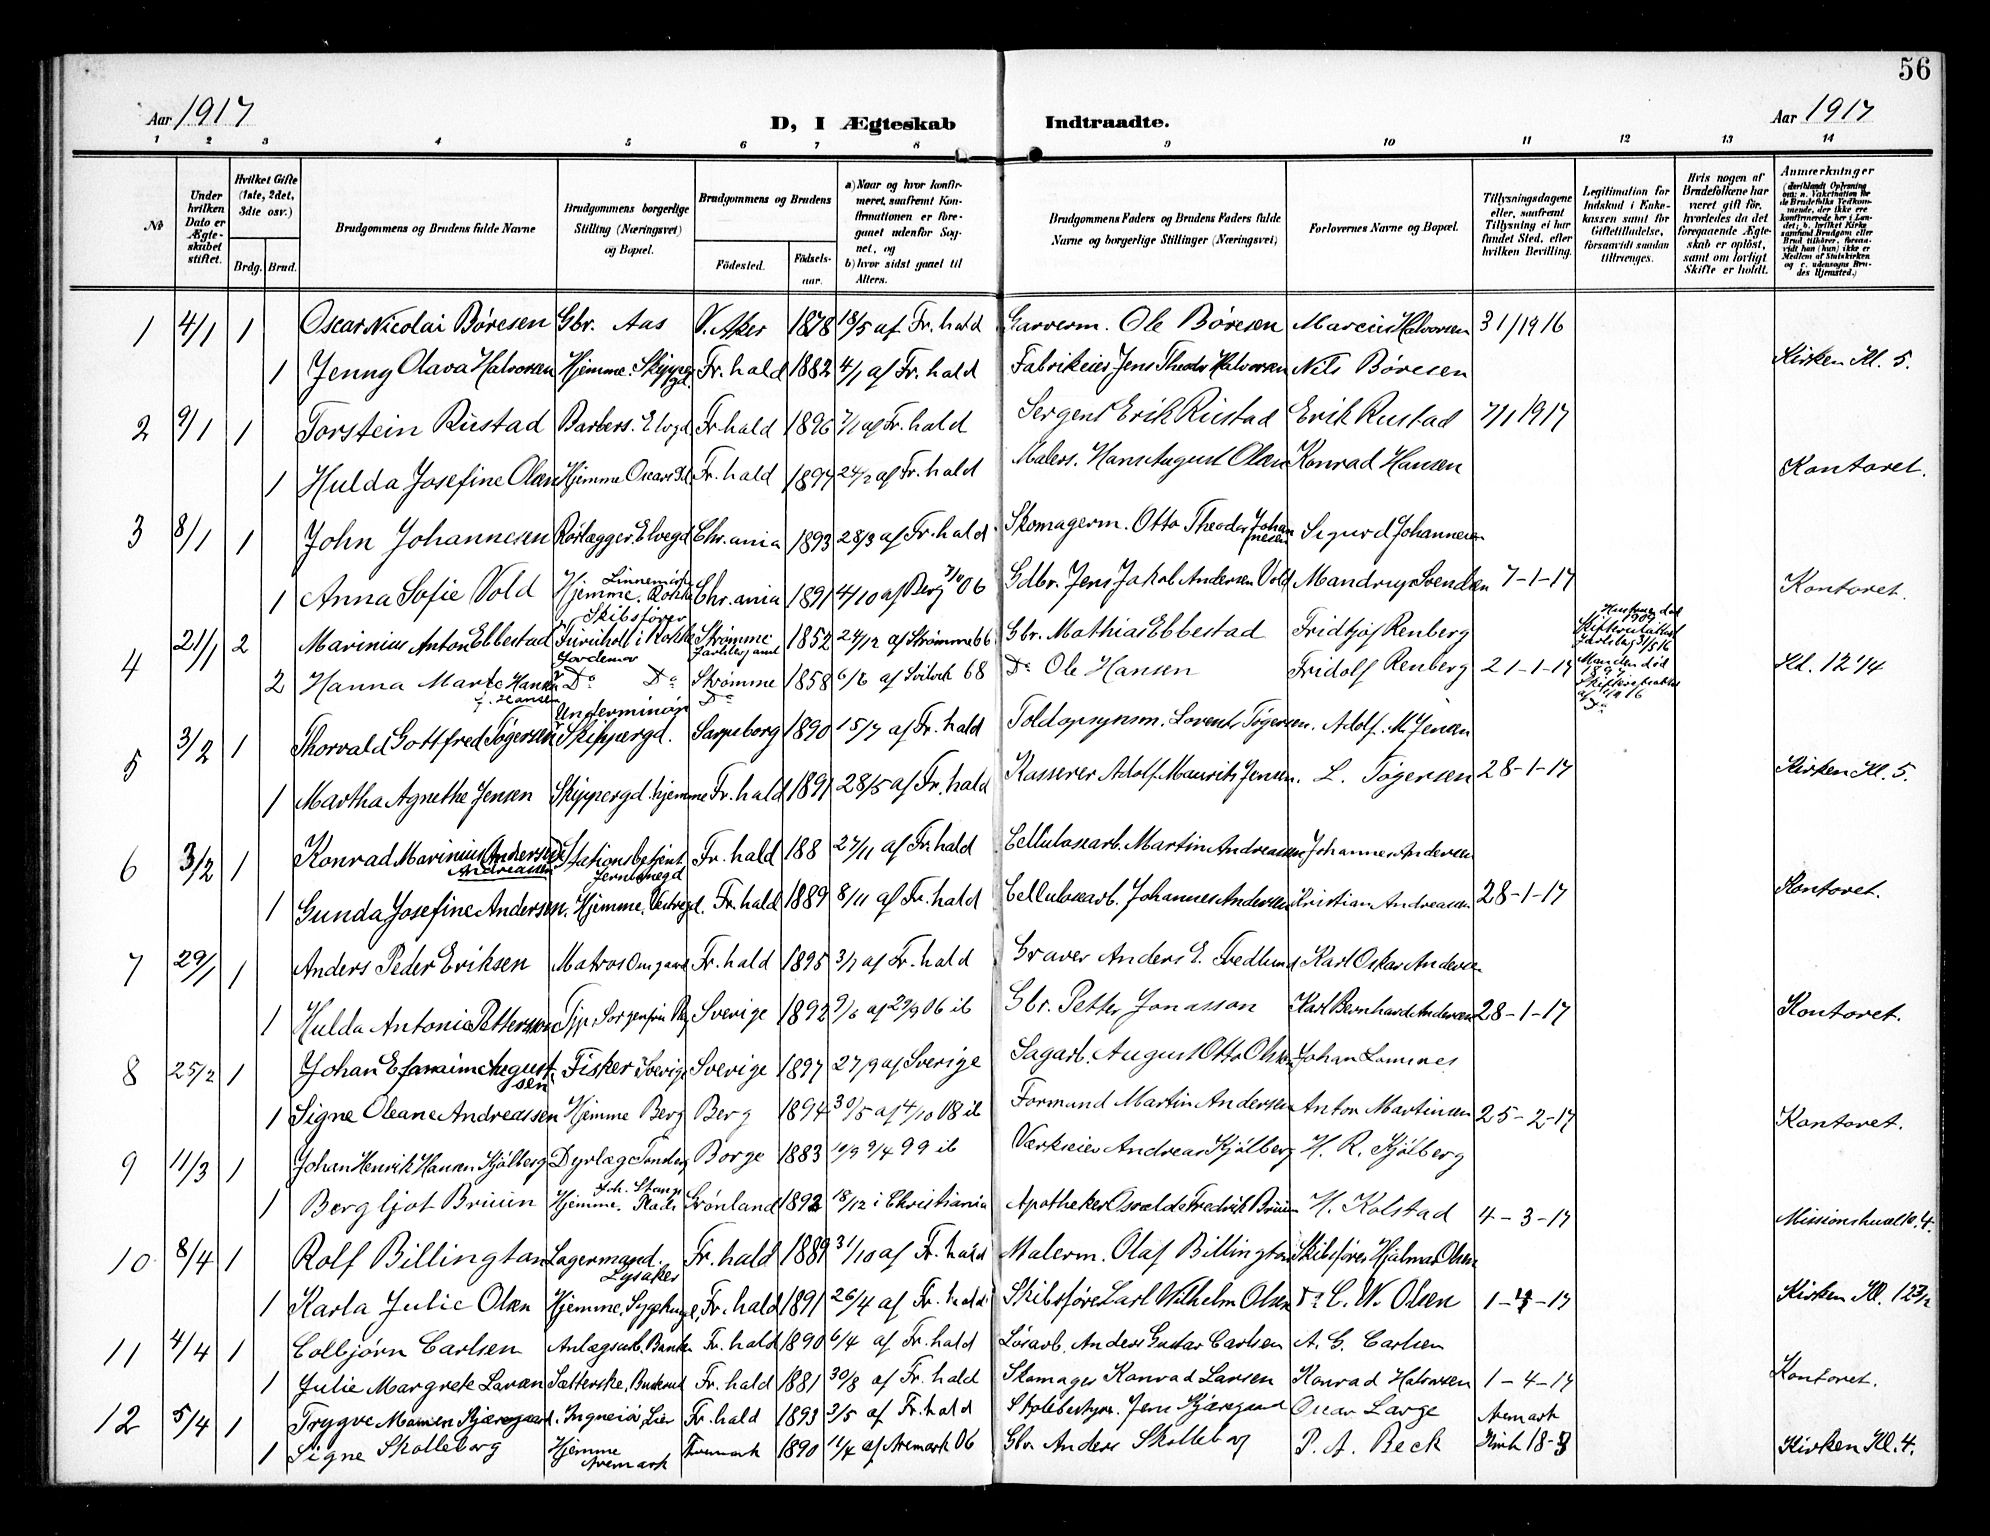 56
Aar 1917
D, I Ægteskab Indtraadte.
Aar 1917
1 2 3 4 5 6 7 8 9 10 11 12 13 14
№
Under hvilken Dato er Ægteskabet stiftet.
Hvilket Gifte (1ste, 2det, 3die osv.)
Brdg. Brud.
Brudgommens og Brudens fulde Navne
Brudgommens borgerlige Stilling (Næringsvei) og Bopæl.
Brudgommens og Brudens
Födested. Födselsaar.
a) Naar og hvor konfirmeret, saafremt Konfirmationen er foregaaet udenfor Sognet, og
b) hvor sidst gaaet til Alters.
Brudgommens Faders og Brudens Faders fulde Navne og borgerlige Stillinger (Næringsvei)
Forlovernes Navne og Bopæl.
Tillysningsdagene eller, saafremt Tillysning ei har fundet Sted, efter hvilken Bevilling.
Legitimation for Indskud i Enkekassen samt for Giftetilladelse, forsaavidt saadan tiltrænges.
Hvis nogen af Brudefolkene har været gift før, hvorledes da det foregaaende Ægteskab er opløst, samt om lovligt Skifte er holdt.
Anmærkninger
1 4/1 1 Oscar Nicolai Böresen Gbr. Aas V. Aker 1878 18/5 af Fr.hald Garverm. Ole Böresen Marcius Halvorsen 31/1916
1 Jenny Olava Halvorsen Hjemme. Skippergd Fr.hald 1882 4/1 af Fr.hald Fabrikeier Jens Theodor Halvorsen Nils Böresen Kirken Kl. 5.
2 9/1 1 Torstein Rustad Barbers. Elvegd Fr.hald 1896 7/1 af Fr.hald Sergent Erik Rustad Erik Rustad 7/1 1917
1 Hulda Josefine Olsen Hjemme Oscarsgd. Fr.hald 1897 24/2 af Fr.hald Malers. Hans August Olsen Konrad Hansen Kontoret.
3 8/1 1 John Johannesen Rörlægger. Elvegd Chr.ania 1893 28/3 af Fr.hald Skomagerm. Otto Theodor Johannesen Sigurd Johannesen
1 Anna Sofie Vold Hjemme. Chr.ania 1891 4/10 af Berg 7/10 06 Gdbr. Jens Jakob Andersen Vold Mandrup Svendsen 7-1-17 Kontoret.
4 21/1 2 Marinius Anton Ebbestad Skibsförer Strömme 1852 24/12 af Strömme 66 Gbr. Mathias Ebbestad Fridtjof Renberg
2 Hanna Marte Jordemor Do Do Strömme Do 1858 6/6 af Do Ole Hansen Fridolf Renberg 21-1-17 Kl. 12 1/4
5 3/2 1 Thorvald Gottfred Tögersen Skippergd. Sarpsborg 1890 15/7 af Fr.hald Toldopsynsm. Lorents Tögersen. Adolf. M. Jensen
1 Martha Agnethe Jensen Skippergd. hjemme Fr.hald 1891 28/5 af Fr.hald Kasserer Adolf Maurits Jensen. L. Tögersen 28-1-17 Kirken Kl. 5.
6 3/2 1 Konrad Marinius Andersen Andreassen Stationsbetjent Jernbanegd Fr.hald 188 27/11 af Fr.hald Cellulosearb. Martin Andreassen Johannes Andersen
1 Gunda Josefine Andersen. Hjemme, Fr.hald 1889 8/11 af Fr.hald Cellulosearb. Johannes Andersen Kristian Andreassen 28-1-17 Kontoret.
7 29/1 1 Anders Peder Eriksen Matros Fr.hald 1895 3/7 af Fr.hald Graver Anders E. Fredlund Karl Oskar Andersen
1 Hulda Antonie Pettersson Tjp. Sverige 1892 9/6 af 29/9 06 ib Gbr. Petter Jonasson Karl Bernhard Andersen 28-1-17 Kontoret.
8 25/2 1 Johan Efraim Augustsen Fisker Sverige Sverige 1897 27/9 af Sverige Sagarb. August Otto Olsson Johan
1 Signe Oleane Andreassen Hjemme Berg Berg 1894 30/5 af 4/10 08 ib Formand Martin Andersen Anton Martinsen 25-2-17 Kontoret.
9 11/3 1 Johan Henrik Hansen Kjölberg Dyrlæge Tönsberg Borge 1883 10/9 9/4 99 ib Værkseier Andreas Kjölberg H. R. Kjölberg
1 Bergljot Bruun Hjemme. Grönland 1892 18/12 i Christiania Apotheker Osvald Fredrik Bruun H. Kolstad 4-3-17 Missionshuset Kl. 4.
10 8/4 1 Rolf Billington Lagermand. Lysaker Fr.hald 1889 31/10 af Fr.hald Malerm. Olaf Billington Skibsförer Hjalmar Olsen
1 Karla Julie Olsen Hjemme, Fr.hald 1891 26/4 af Fr.hald Skibsförer Carl Wilhelm Olsen Do C. W. Olsen 1-4-17 Kirken Kl. 12 3/2
11 4/4 1 Colbjörn Carlsen Anlægsarb. Fr.hald 1890 6/4 af Fr.hald Lösarb. Anders Gustav Carlsen A. G. Carlsen
1 Julie Margrete Larsen Sætterske, Fr.hald 1881 30/8 af Fr.hald Skomager Konrad Larsen Konrad Halvorsen 1-4-17 Kontoret.
12 5/4 1 Trygve Kjærsgaard. Ingeniör, Lier Fr.hald 1893 2/5 af Fr.hald Skolebestyrer Jens Kjærsgaard Oscar Lange Aremark
1 Signe Skolleborg Hjemme Aremark Aremark 1890 11/4 af Aremark 06 Gbr. Anders Skolleborg P. A. Beck Kirk 18-3 Kirken Kl. 4.